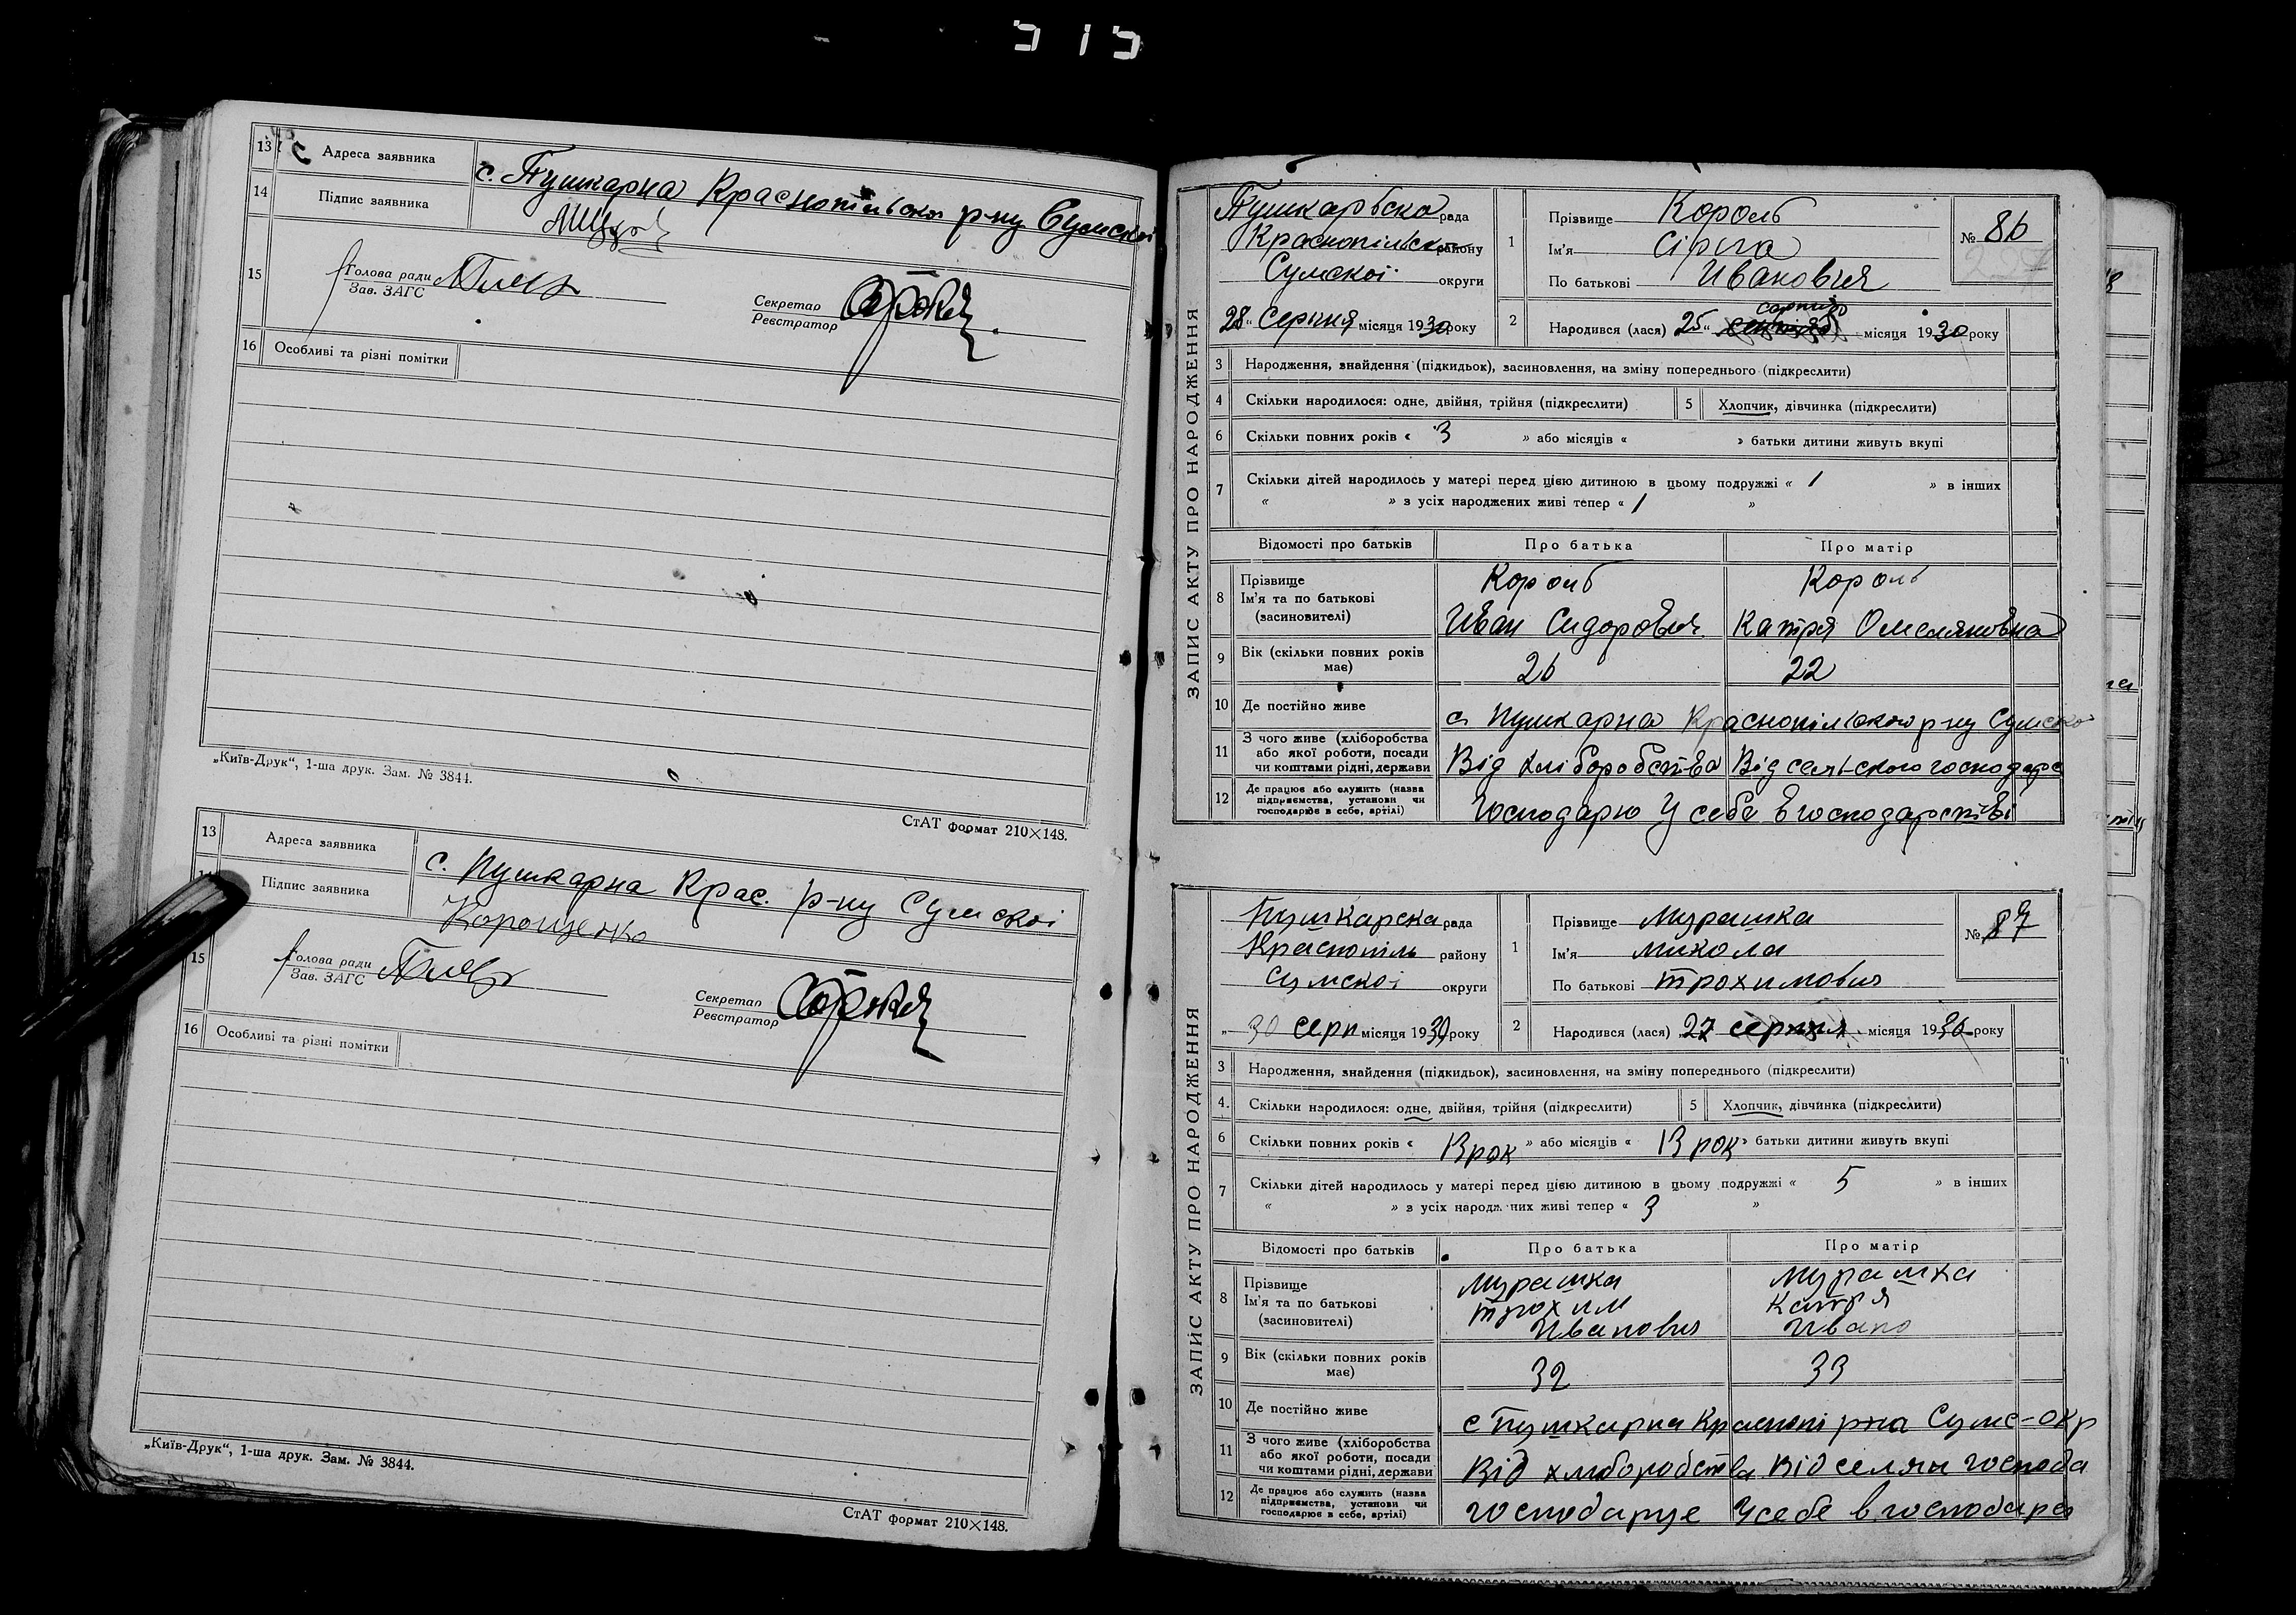 13 Адреса заявника с. Пушкарна Краснопільского р-ну Сумскоі
14 Підпис заявника
15 Голова ради
Зав. ЗАГС
Секретар
Реєстратор
16 Особливі та різні помітки
„Київ-Друк“, 1-ша друк. Зам. № 3844.
СтАТ формат 210×148.
13 Адреса заявника с. Пушкарна Крас. р-ну Сумскоі
14 Підпис заявника
15 Голова ради
Зав. ЗАГС
Секретар
Реєстратор
16 Особливі та різні помітки
„Київ-Друк“, 1-ша друк. Зам. № 3844.
СтАТ формат 210×148.
ЗАПИС АКТУ ПРО НАРОДЖЕННЯ
Пушкарьска рада
Краснопільского району
Сумскоі округи
28 Серпня місяця 1930 року
1 Прізвище Король
Ім'я
По батькові Ивановичя
№ 86
2 Народився (лася) 25 місяця 1930 року
3 Народження, знайдення (підкидьок), засиновлення, на зміну попереднього (підкреслити)
4 Скільки народилося: одне, двійня, трійня (підкреслити) 5 Хлопчик, дівчинка (підкреслити)
6 Скільки повних років « 3 » або місяців « » батьки дитини живуть вкупі
7 Скільки дітей народилось у матері перед цією дитиною в цьому подружжі « 1 » в інших
« » з усіх народжених живі тепер « 1 »
Відомості про батьків Про батька Про матір
8 Прізвище Король Король
Ім'я та по батькові
(засиновителі) Иван Сидорович Катря Омеляновна
9 Вік (скільки повних років має) 26 22
10 Де постійно живе с Пушкарна Краснопільского р-ну Сумско
11 З чого живе (хліборобства або якої роботи, посади чи коштами рідні, держави Від хліборобства Від сельского господарс
12 Де працює або служить (назва підприємства, установи чи господарює в себе, артілі) Господарю У себе в господарстві
ЗАПИС АКТУ ПРО НАРОДЖЕННЯ
Пушкарска рада
Краснопіль району
Сумскоі округи
„ 30 серп місяця 1930 року
1 Прізвище Мурашка
Ім'я Микола
По батькові Трохимович
№ 87
2 Народився (лася) 27 серпня місяця 1930 року
3 Народження, знайдення (підкидьок), засиновлення, на зміну попереднього (підкреслити)
4. Скільки народилося: одне, двійня, трійня (підкреслити) 5 Хлопчик, дівчинка (підкреслити)
6 Скільки повних років « 13 рок » або місяців « 13 рок » батьки дитини живуть вкупі
7 Скільки дітей народилось у матері перед цією дитиною в цьому подружжі « 5 » в інших
« » з усіх народж них живі тепер « 3 »
Відомості про батьків Про батька Про матір
8 Прізвище Мурашка Мурашка
Ім'я та по батькові Трохим Катря
(засиновителі) Иванович Ивано
9 Вік (скільки повних років має) 32 33
10 Де постійно живе с Пушкарна Краснопі рна Сумс-окр
11 З чого живе (хліборобства або якої роботи, посади чи коштами рідні, держави Від хлиборобства Від селян господа
12 Де працює або служить (назва підприємства, установи чи господарює в себе, артілі) господарує Усебе в господарс